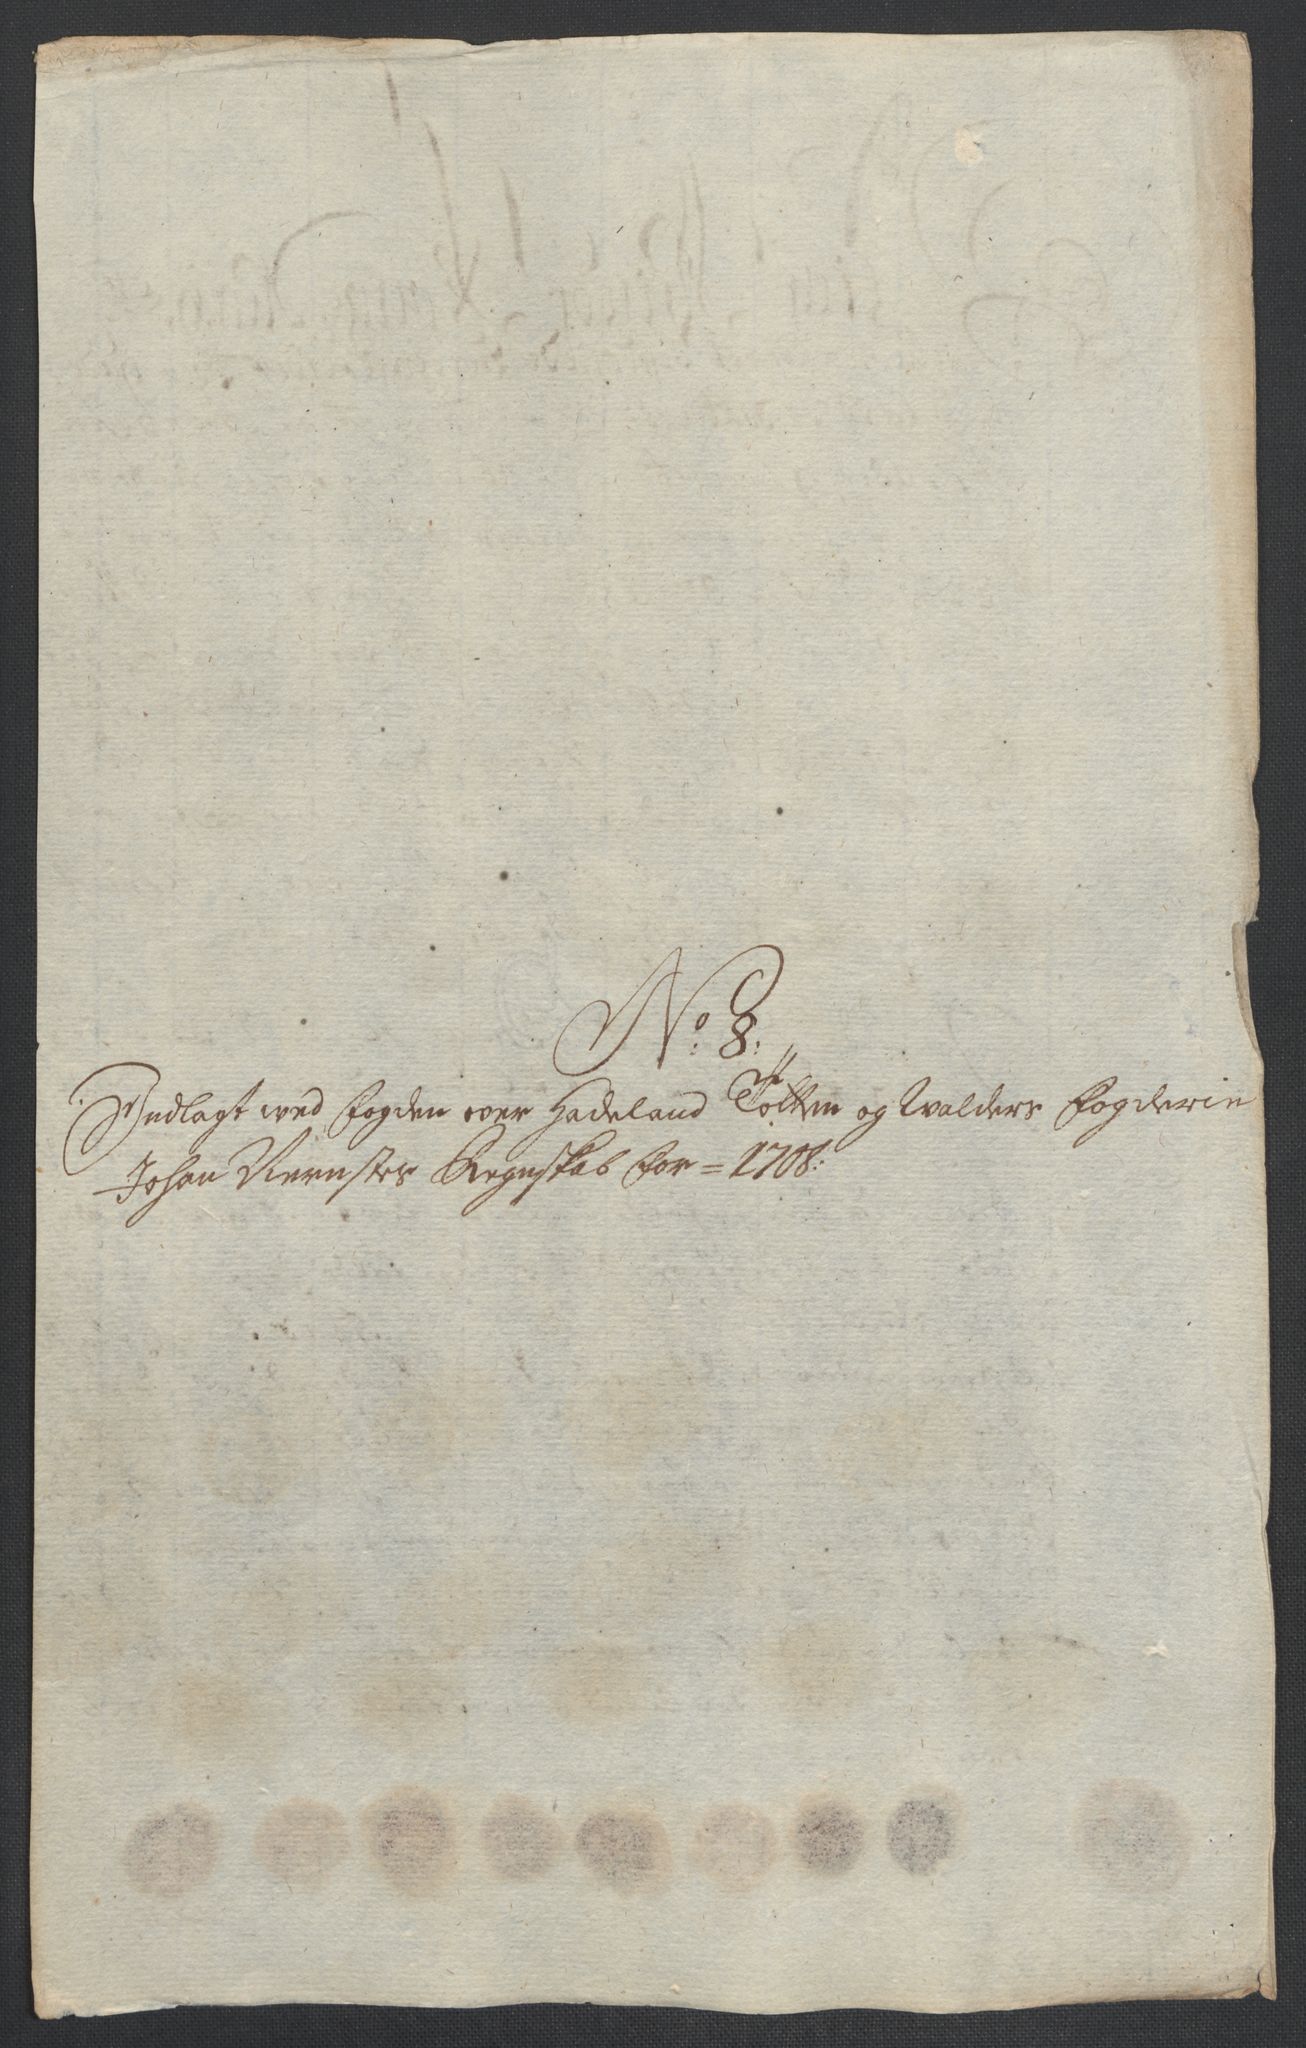 No: 8:
Indlagt wed fogden over Hadeland Totten og Walders Fogderie
Johan Regnskab for = 1708: